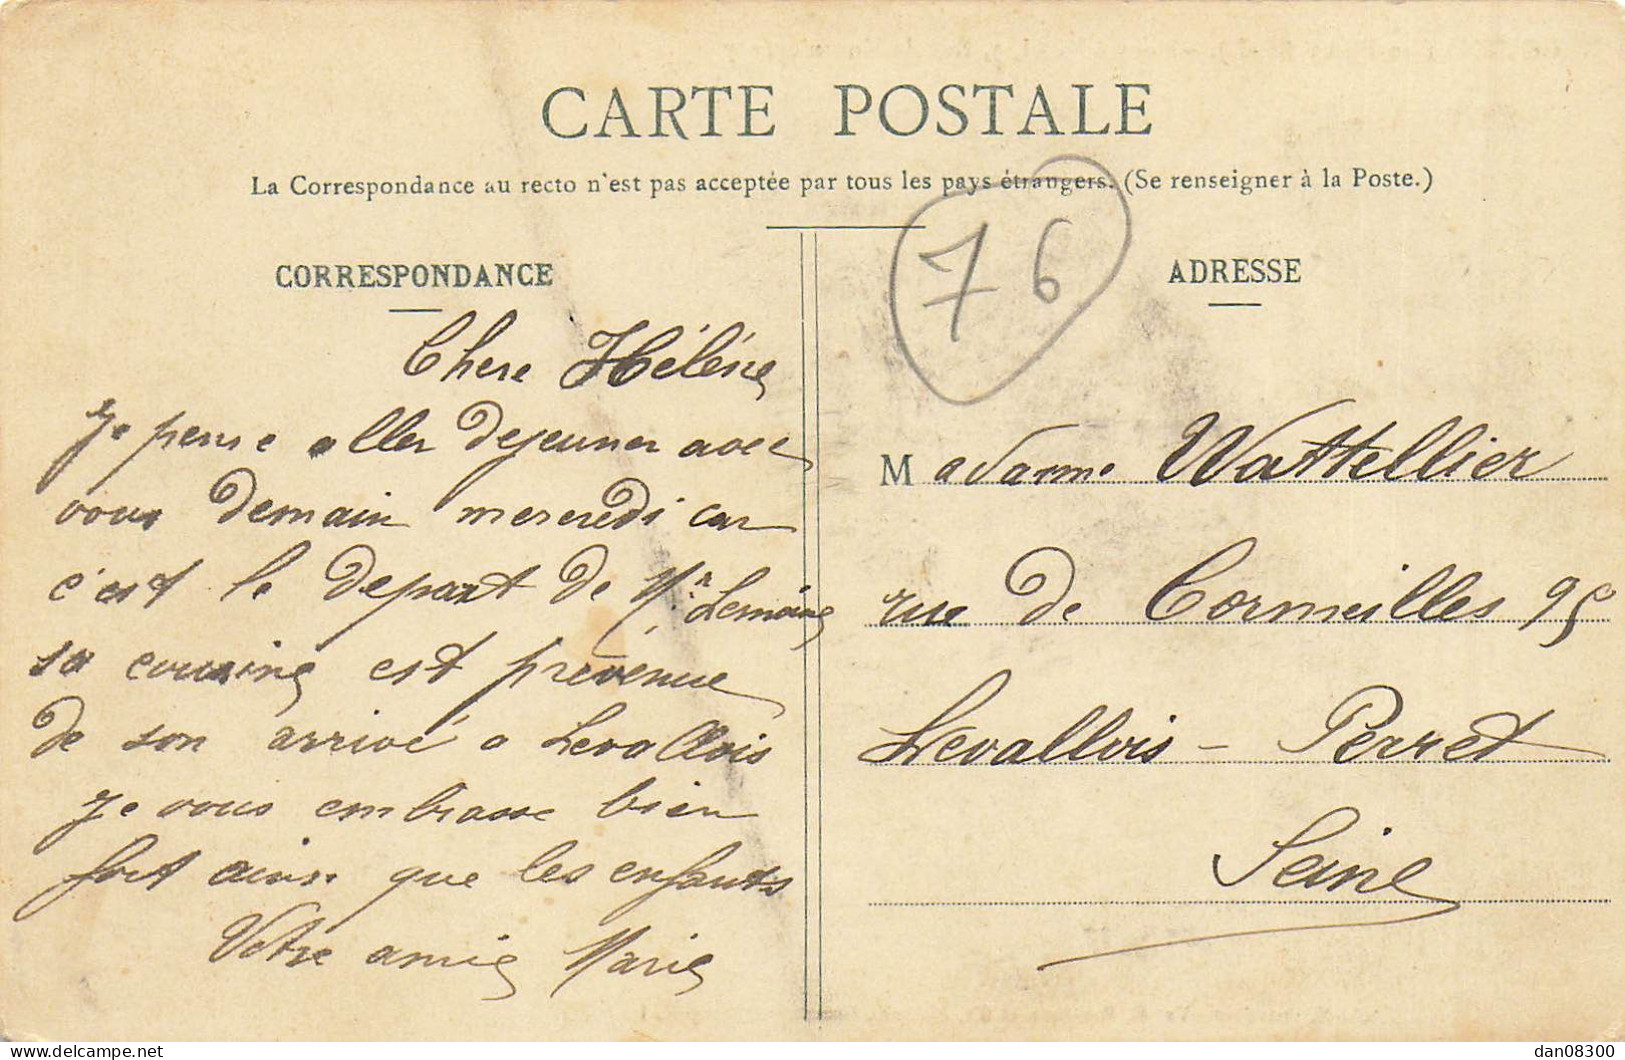 CARTE POSTALE
La Correspondance au recto n'est pas acceptée par tous les pays étrangers. (Se renseigner à la Poste.)
76
CORRESPONDANCE
Chere Hélène
Je pense aller dejeuner avec
vous demain mercredi car
c'est le depart de Mr. Lemoine
sa cousine est prévenue
de son arrivé a Levallois
Je vous embrasse bien
fort ainsi que les enfants
Votre amie Marie
ADRESSE
Madame Wattellier
rue de Cormeilles 95
Levallois - Perret
Seine
delcampe.net
dan08300